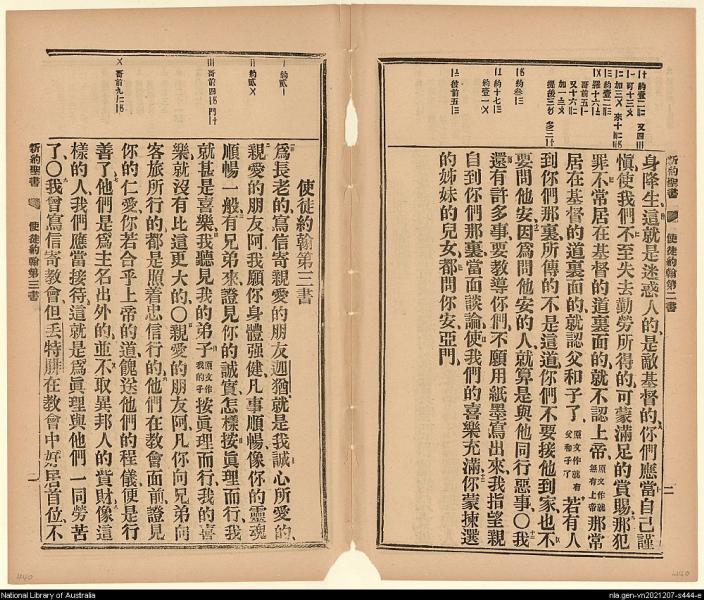 新約聖書
使徒約翰第二書
身降生這就是迷惑人的是敵基督的你們應當自己謹
愼使我們不至失去勤勞所得的可蒙滿足的賞賜那犯
罪不常居在基督的道裏面的就不認上帝原文作就無有上帝那常
居在基督的道裏面的就認父和子了原文作就有父和子了若有人
到你們那裏所傳的不是這道你們不要接他到家也不
要問他安因爲問他安的人就算是與他同行惡事〇我
還有許多事要教導你們不願用紙墨寫出來我指望親
自到你們那裏當面談論使我們的喜樂充滿你蒙揀選
的姊妹的兒女都問你安亞們
使徒約翰第三書
爲長老的寫信寄親愛的朋友迦猶就是我誠心所愛的
親愛的朋友阿我願你身體强健凡事順暢像你的靈魂
順暢一般有兄弟來證見你的誠實怎樣按眞理而行我
就甚是喜樂我聽見我的弟子原文作我的子按眞理而行我的喜
樂就沒有比這更大的〇親愛的朋友阿凡你向兄弟向
客旅所行的都是照着忠信行的他們在教會面前證見
你的仁愛你若合乎上帝的道餽送他們的程儀便是行
善了他們是爲主名出外的並不取異邦人的貲財像這
樣的人我們應當接待這就是爲眞理與他們一同勞苦
了〇我曾寫信寄教會但丟特腓在教會中好居首位不
新約聖書
使徒約翰第三書
National Library of Australia
nla.gen-vn2021207-s444-e